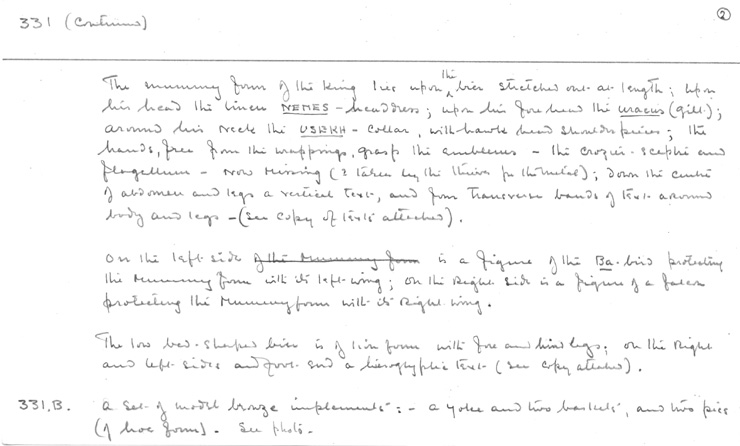 331 (Continued)
2
The mummy form of the King lies upon the bier stretched out at length; upon
his head the linen NEMES-headdress; upon his forehead the uraeus (gilt);
around his neck the USEKH-collar, with hawk head shoulder pieces; the
hands, free from the wrappings, grasp the emblems - the crozier-sceptre and
flagellum - now missing (? taken by the thieves for the metal); down the centre
of abdomen and legs a vertical text, and four transverse bands of text around
body and legs - (see copy of texts attached).
On the left side of the mummy form is a figure of the Ba-bird protecting
the mummy form with its left wing; on the right side is a figure of a falcon
protecting the mummy form with its right wing.
The low bed-shaped bier is of lion form with fore and hind legs; on the right
and left sides and foot-end a hieroglyphic text (see copy attached).
331.B. a set of model bronze implements: - a yoke and two baskets, and two pics
(of hoe form). See photo.